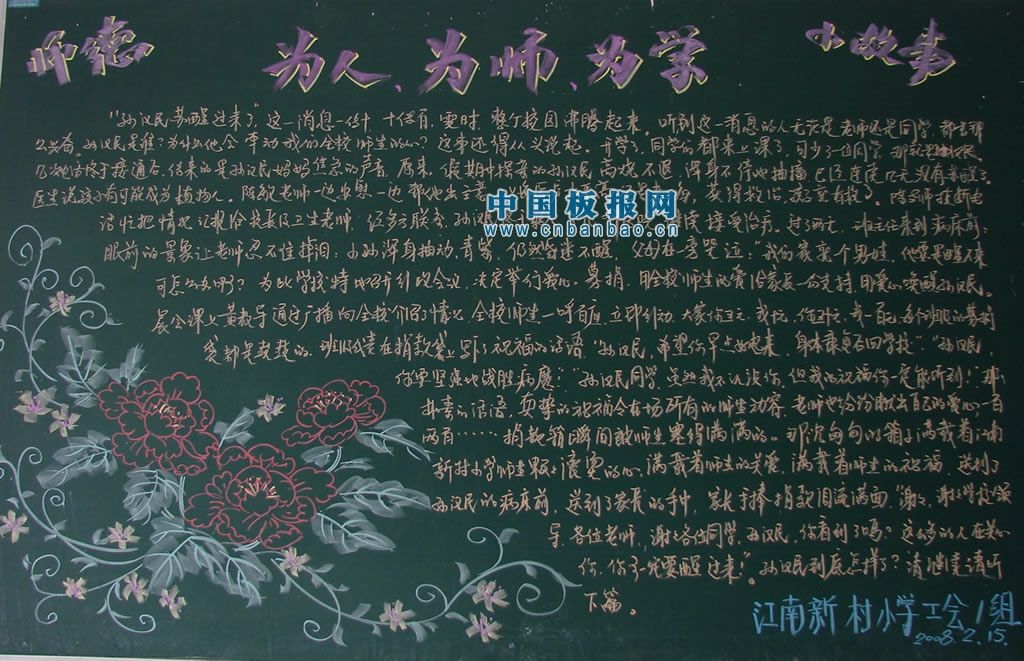 师德 为人、为师、为学 小故事
"孙汉民苏醒过来了",这一消息一传十 十传百,霎时 整个校园沸腾起来。听到这一消息的人无论是老师还是同学,都
兴奋。孙汉民是谁?为什么他会牵动我们全校师生的心?这事还得从头说起。开学了,同学们都来上课了,可少了一位同学,那就是孙汉民。
电话终于接通后,传来的是孙汉民妈妈焦急的声音,原来,假期中探亲的孙汉民高烧不退,浑身不停地抽搐,已经连续几天没有苏醒了。
医生说孩子有可能成为植物人。陈敏老师一边安慰一边帮他出主意 获得救治,孩子就有救了。陈老师挂断电
话忙把情况汇报给校长及卫生老师,经多方联系,孙汉 接受治疗。过了两天,班主任来到病床前:
中国板报网
www.cnbanbao.cn
眼前的景象让老师忍不住掉泪:小孙浑身抽动,青紫,仍然昏迷不醒,父母在一旁哭泣:"我们家就一个男娃,他要是醒不来
可怎么办啊?为此学校特地召开行政会议,决定举行爱心募捐,用全校师生的爱给家长一份支持,用爱心唤醒孙汉民。
晨会课上黄教导通过广播向全校介绍了情况,全校师生一呼百应,立即行动,大家你五元,我十元,你五十元,我一百元,每个班级的募捐
袋都是鼓鼓的,班级代表在捐款袋上写了祝福的话语"孙汉民,希望你早点好起来,身体康复后回学校""孙汉民,
你要坚强地战胜病魔!""孙汉民同学,虽然我不认识你,但我的祝福你一定能听到!"那
朴素的话语,真挚的祝福令在场所有的师生动容,老师也纷纷献出自己的爱心,一百
两百……捐款箱瞬间被师生塞得满满的。那沉甸甸的箱子满载着江南
新村小学师生颗颗滚烫的心,满载着师生的关爱,满载着师生的祝福,送到了
孙汉民的病床前,送到了家长的手中,家长手捧捐款泪流满面"谢谢,谢谢学校领
导,各位老师,谢谢各位同学,孙汉民,你看到了吗?这么多的人在关心
你,你一定要醒过来!"孙汉民到底怎样了?请继续请听
下篇。
江南新村小学工会1组
2008.2.15.